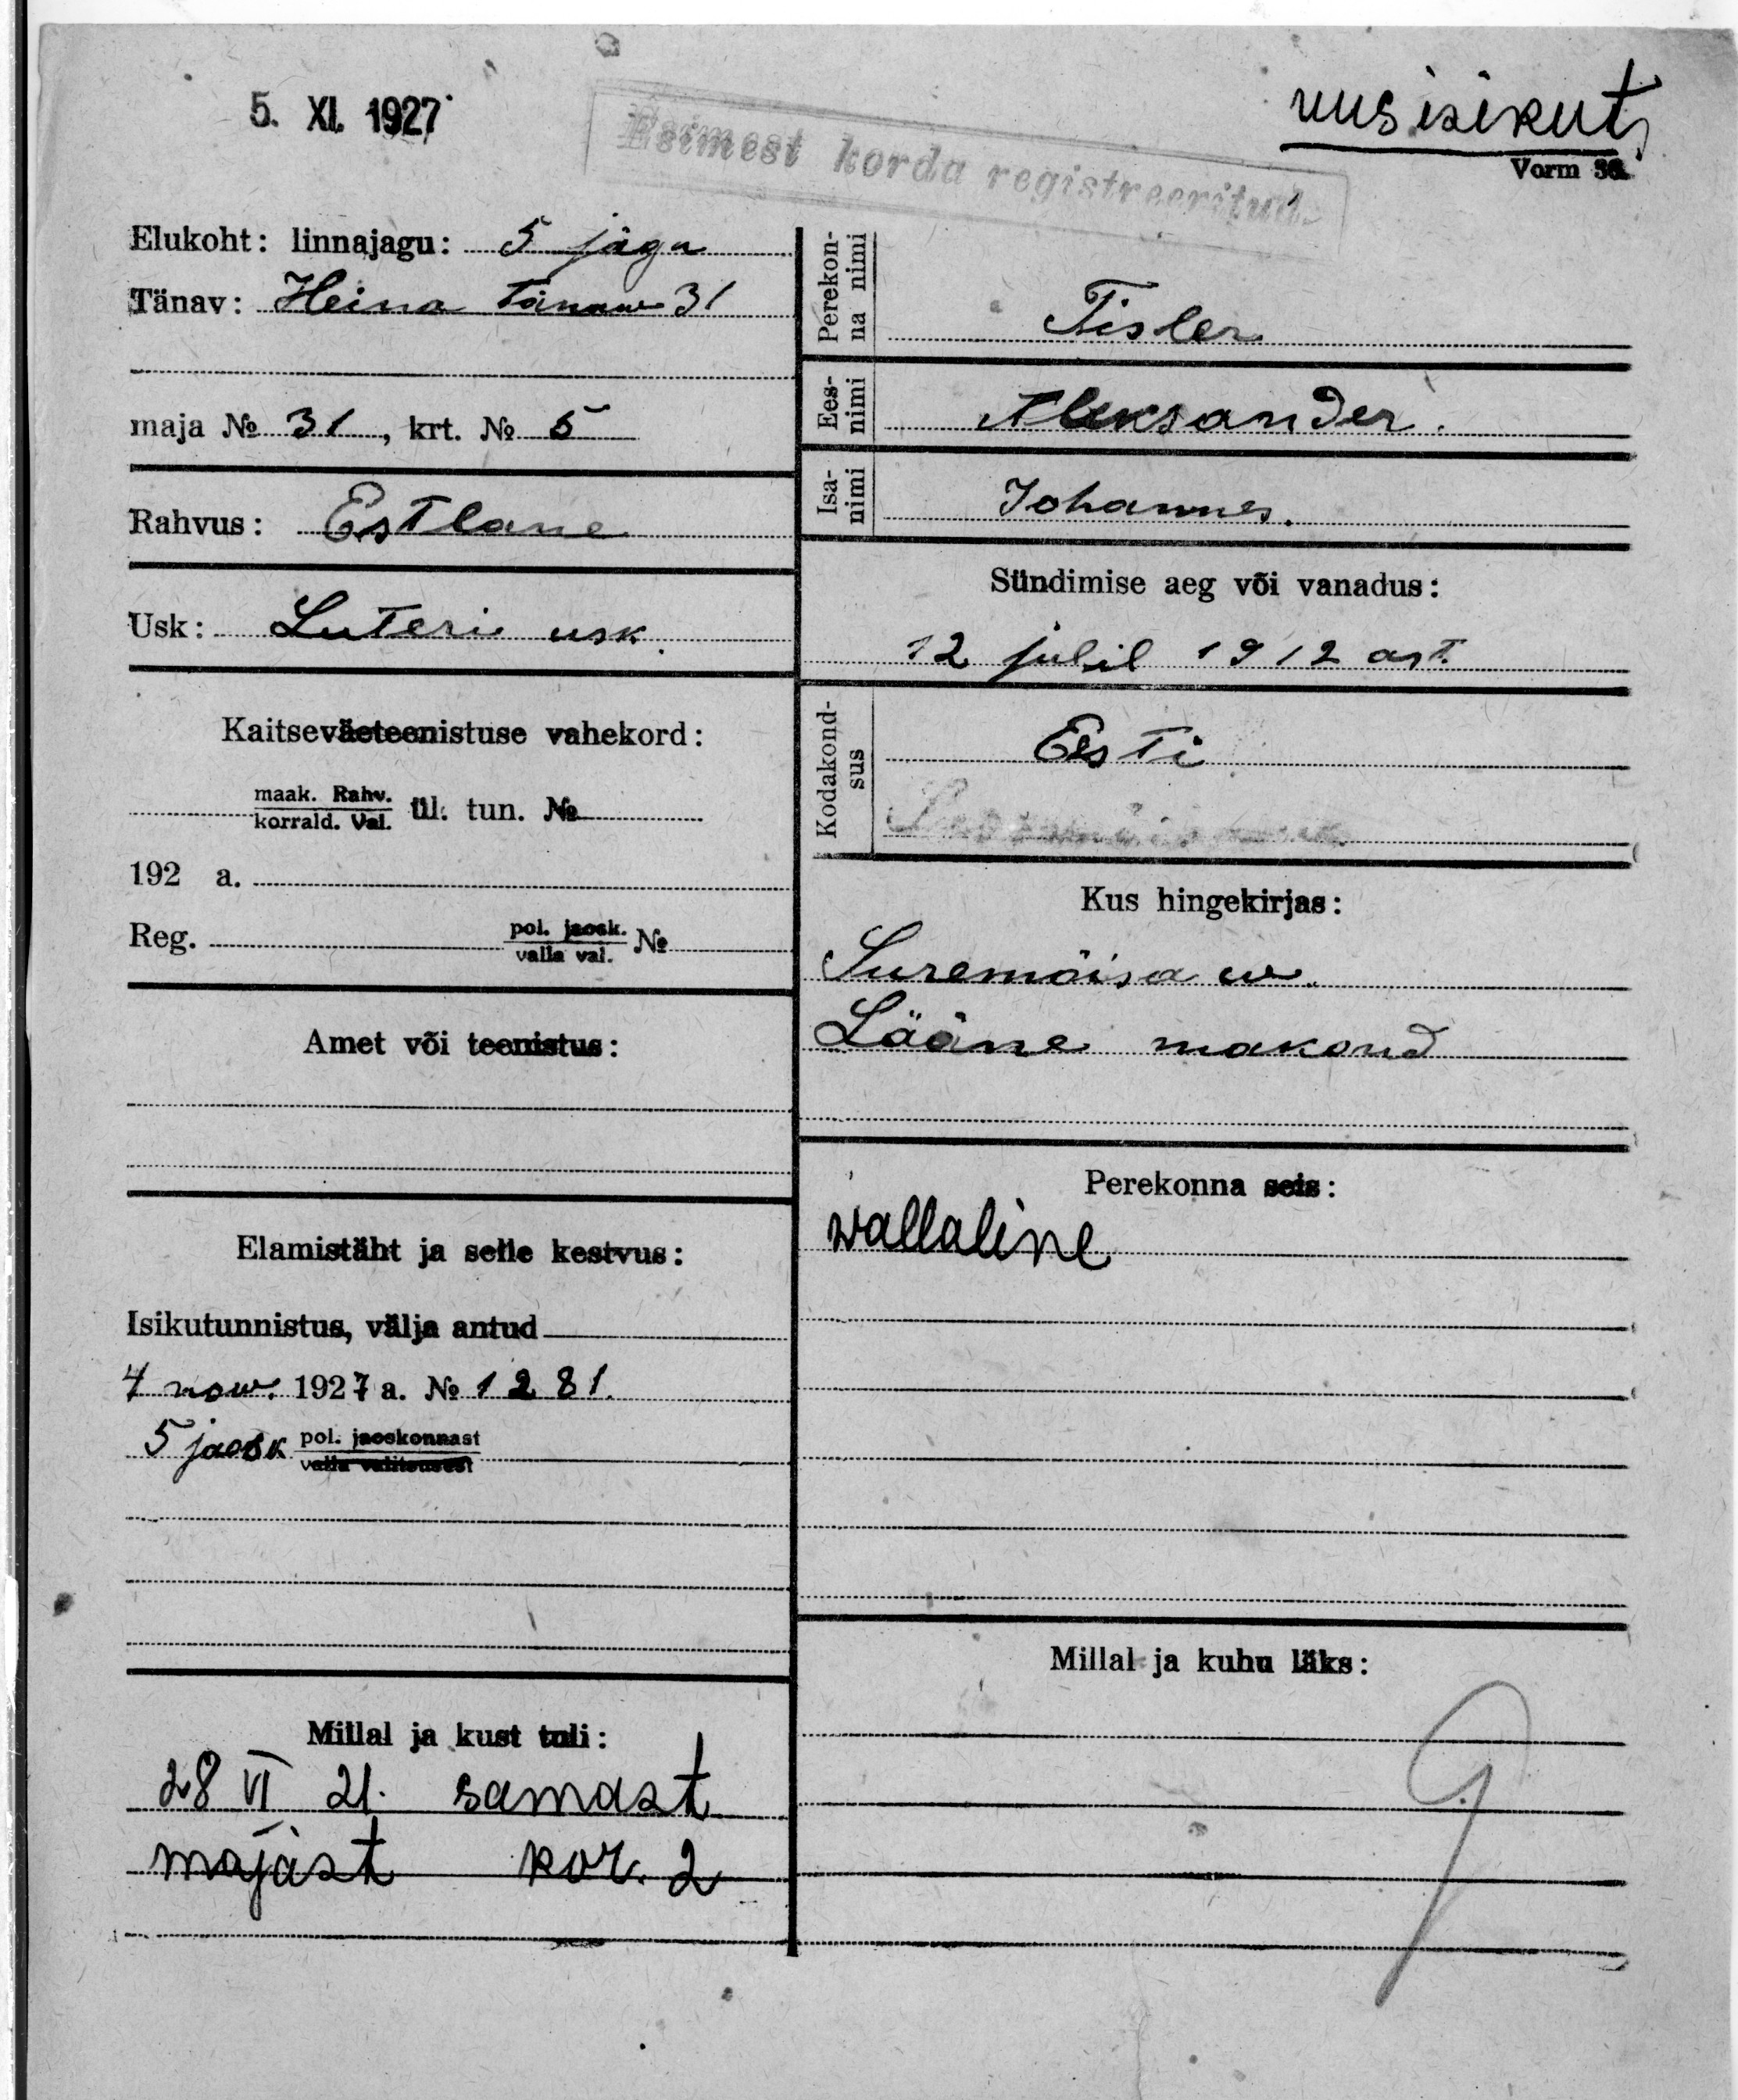 5. XI. 1927
Esimest korda registreeritud.
uus isikut,
Vorm 36.
Elukoht: linnajagu: 5 jägu
Tänav: Heina tänaw 31
maja № 31, krt. № 5
Rahvus: Estlane
Usk: Luteri usk.
Kaitseväeteenistuse vahekord:
maak. Rahv.
korrald. Val. ül. tun. №
192 a.
Reg. pol. jaosk.
valla val. №
Amet või teenistus:
Elamistäht ja selle kestvus:
Isikutunnistus, välja antud
4 now. 1927 a. № 1281.
5 jaosk pol. jaoskonnast
valla valitsusest
Millal ja kust tuli:
28 VI 21. samast
majast kor. 2
Perekon-
na nimi
Tisler
Ees-
nimi
Aleksander.
Isa-
nimi
Johannes.
Sündimise aeg või vanadus:
12 julil 1912 ast.
Kodakond-
sus
Eesti
Kus hingekirjas:
Suremõisa w.
Lääne makond
Perekonna seis:
wallaline
Millal ja kuhu läks: